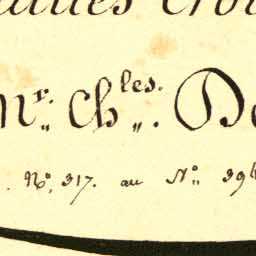 Mr. Chles. De
No. 317. au No. 39